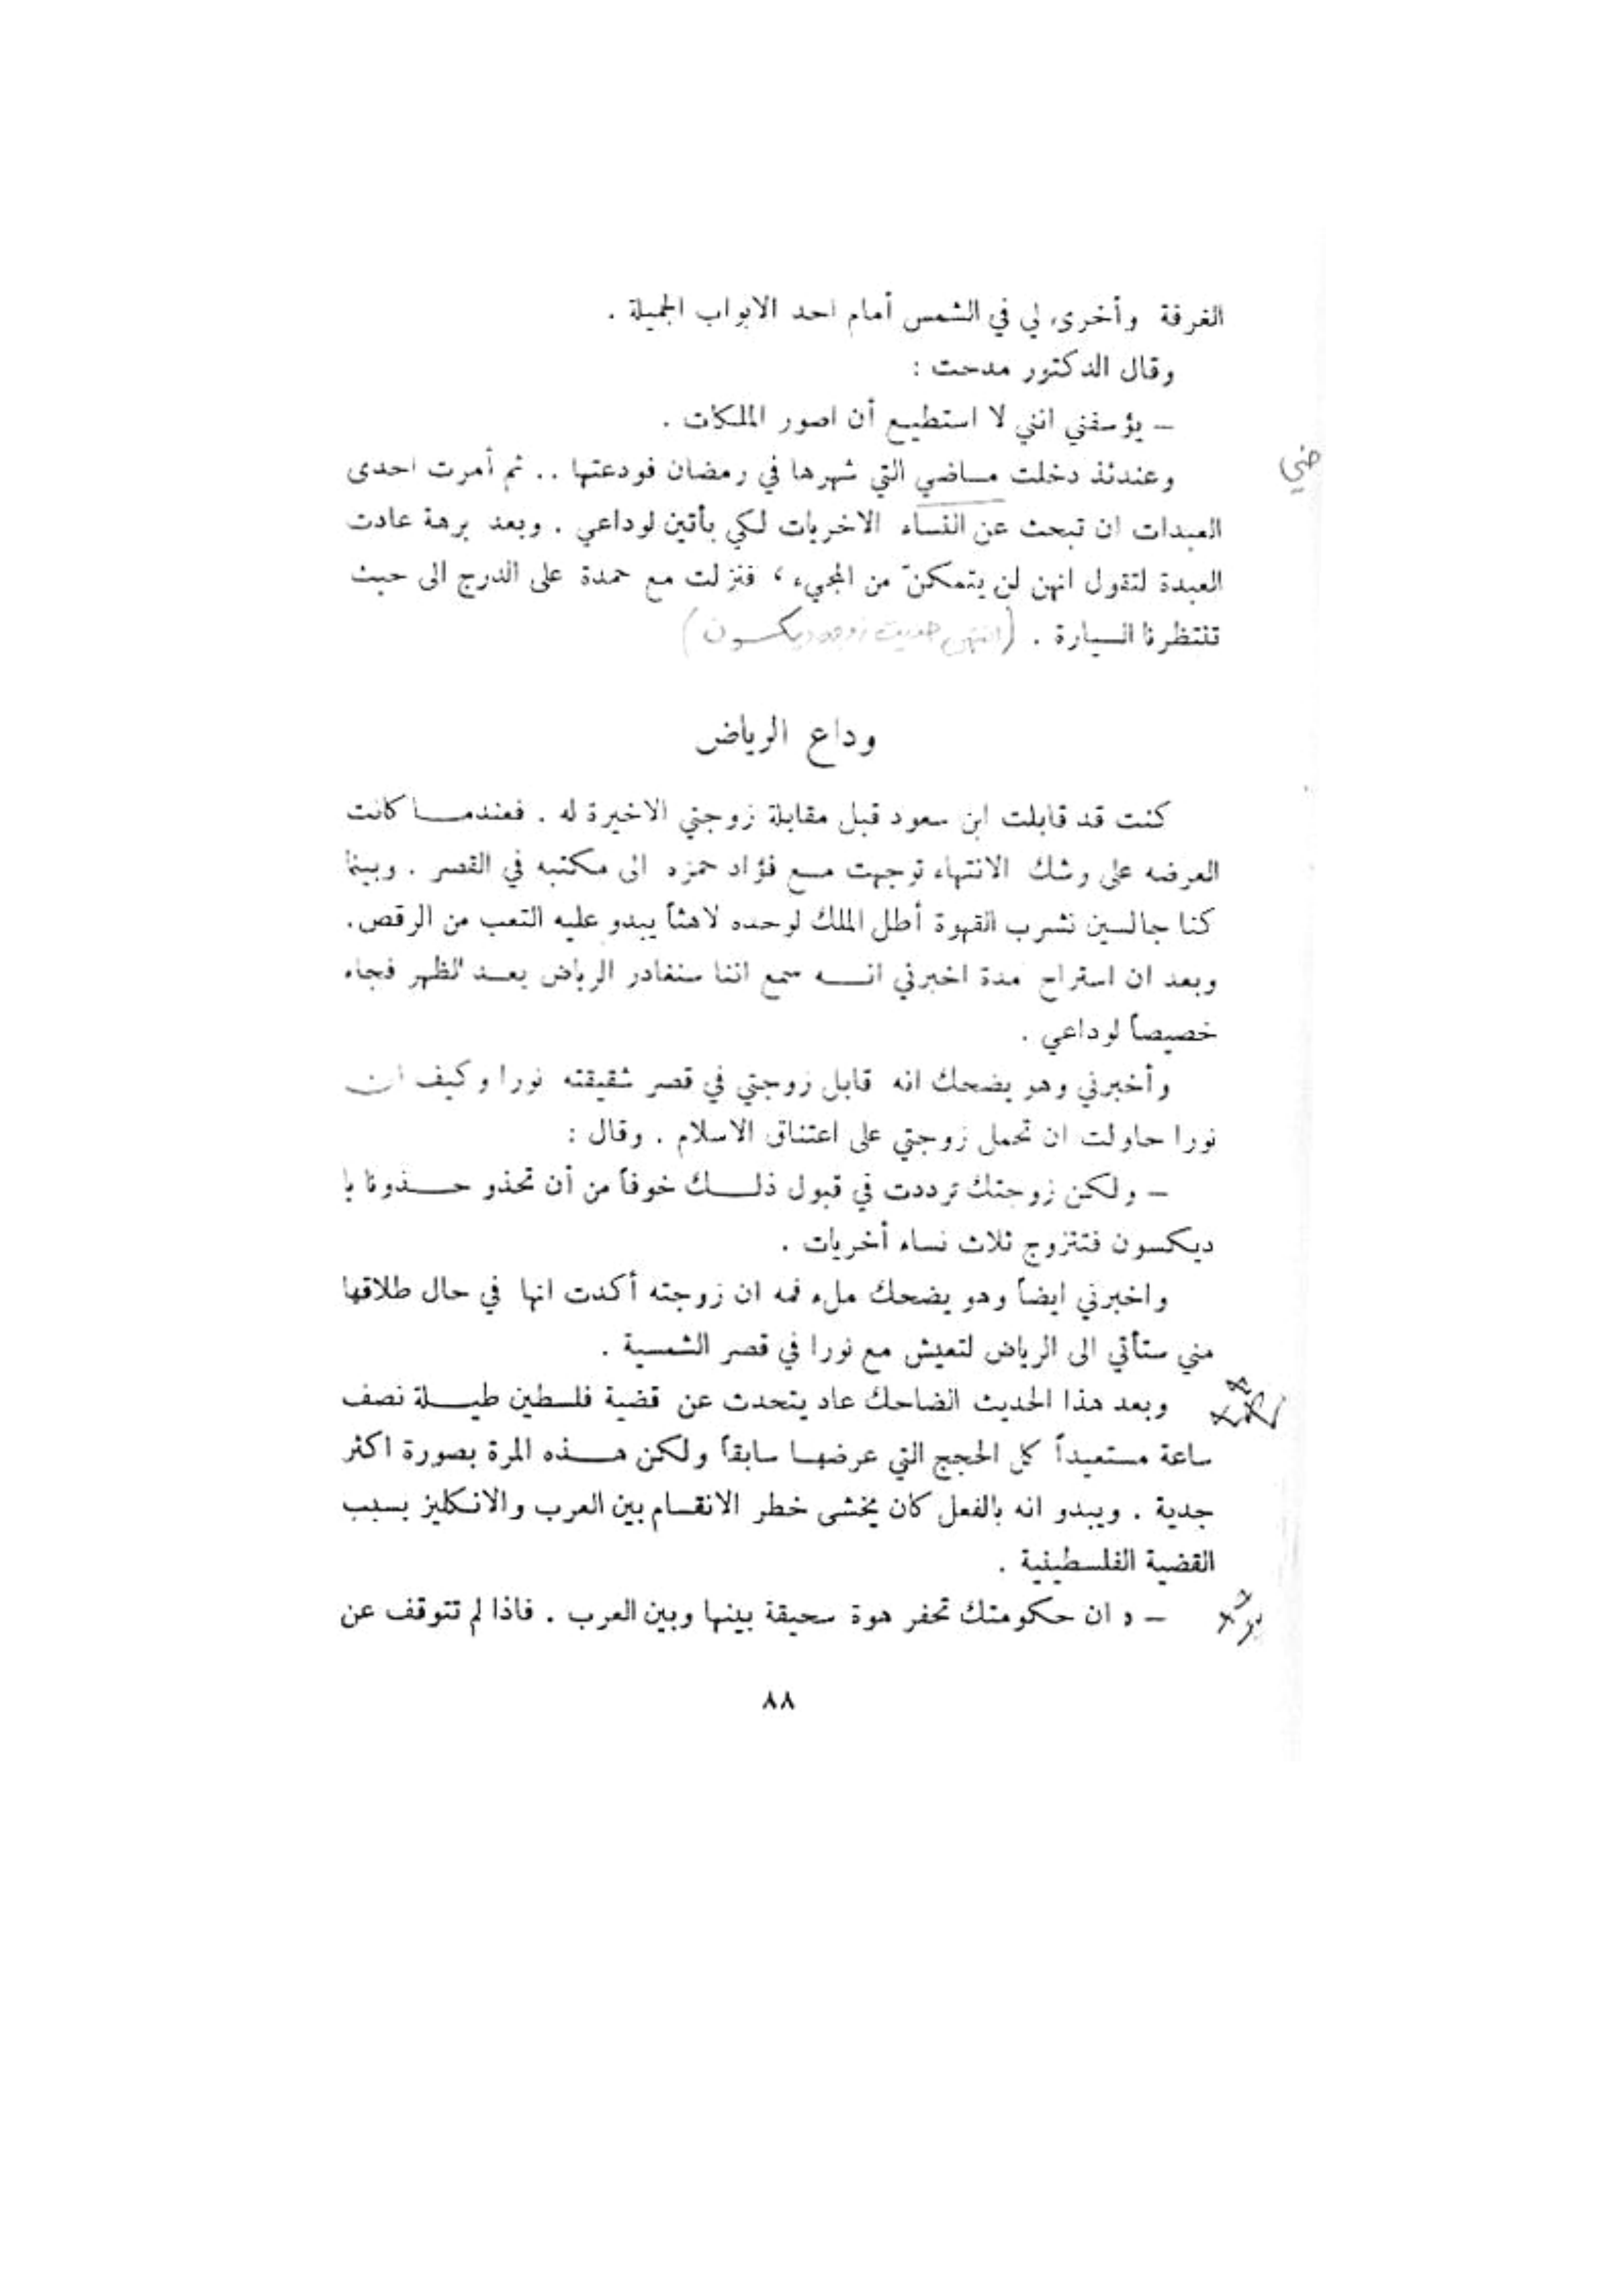 الغرفة وأخرى لي في الشمس أمام احد الابواب الجميلة .
وقال الدكتور مدحت :
– يؤسفني انني لا استطيع أن اصور الملكات .
وعندئذ دخلت مـاضي التي شهرها في رمضان فودعتها .. ثم أمرت احدى
ضي
العبدات ان تبحث عن النساء الاخريات لكي يأتين لوداعي . وبعد برهة عادت
العبدة لتقول انهن لن يتمكنّ من المجيء ، فنزلت مع حمدة على الدرج الى حيث
تنتظرنا السيارة . (انتهى حديث زوجه ديكسون)
وداع الرياض
كنت قد قابلت ابن سعود قبل مقابلة زوجتي الاخيرة له . فعندمـا كانت
العرضه على وشك الانتهاء توجهت مع فؤاد حمزه الى مكتبه في القصر . وبينما
كنا جالسين نشرب القهوة أطل الملك لوحده لاهثاً يبدو عليه التعب من الرقص.
وبعد ان استراح مدة اخبرني انـه سمع اننا سنغادر الرياض بعـد الظهر فجاء
خصيصاً لوداعي .
وأخبرني وهو يضحك انه قابل زوجتي في قصر شقيقته نورا وكيف ان
نورا حاولت ان تحمل زوجتي على اعتناق الاسلام . وقال :
– ولكن زوجتك ترددت في قبول ذلـك خوفاً من أن تحذو حـذونا يا
ديكسون فتتزوج ثلاث نساء أخريات .
واخبرني ايضاً وهو يضحك ملء فمه ان زوجته أكدت انها في حال طلاقها
مني ستأتي الى الرياض لتعيش مع نورا في قصر الشمسية .
وبعد هذا الحديث الضاحك عاد يتحدث عن قضية فلسطين طيـلة نصف
ساعة مستعيداً كل الحجج التي عرضهـا سابقاً ولكن هـذه المرة بصورة اكثر
جدية . ويبدو انه بالفعل كان يخشى خطر الانقسام بين العرب والانكليز بسبب
القضية الفلسطينية .
– « ان حكومتك تحفر هوة سحيقة بينها وبين العرب . فاذا لم تتوقف عن
٨٨